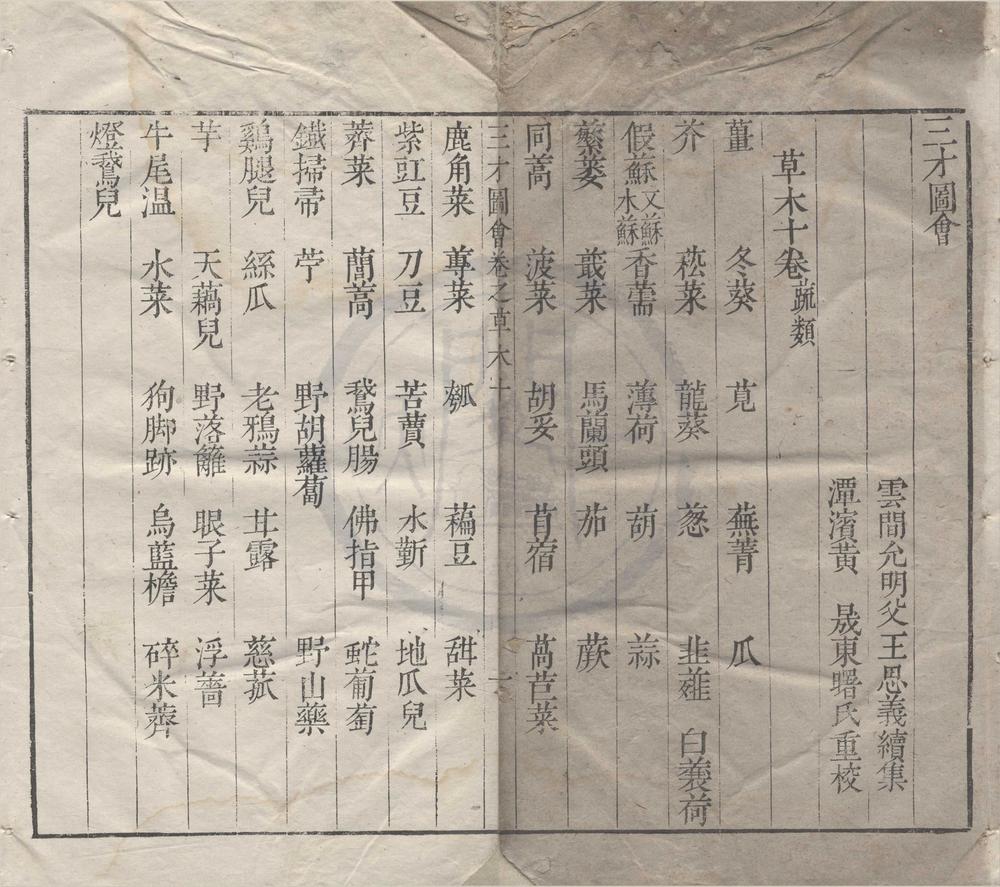 三才圖會
雲間允明父王思義續集
潭濱黃　晟東曙氏重校
草木十卷 蔬類
薑　冬葵　莧　蕪菁　瓜
芥　菘菜　龍葵　葱　韭薤　白蘘荷
假蘇 又蘇 水蘇　香薷　薄荷　葫　蒜
蘩蔞　蕺菜　馬蘭頭　茄　蕨
同蒿　菠菜　胡荽　苜宿　萵苣菜
三才圖會 卷之草木十　一
鹿角菜　蓴菜　瓠　藊豆　甜菜
紫豇豆　刀豆　苦蕒　水斳　地瓜兒
薺菜　䕲蒿　鵞兒腸　佛指甲　蛇葡萄
鐵掃帚　苧　野胡蘿蔔　野山藥
鷄腿兒　絲瓜　老鴉蒜　甘露　慈菰
芋　天藕兒　野落籬　眼子菜　浮薔
牛尾温　水菜　狗脚跡　烏藍檐　碎米薺
燈鵞兒